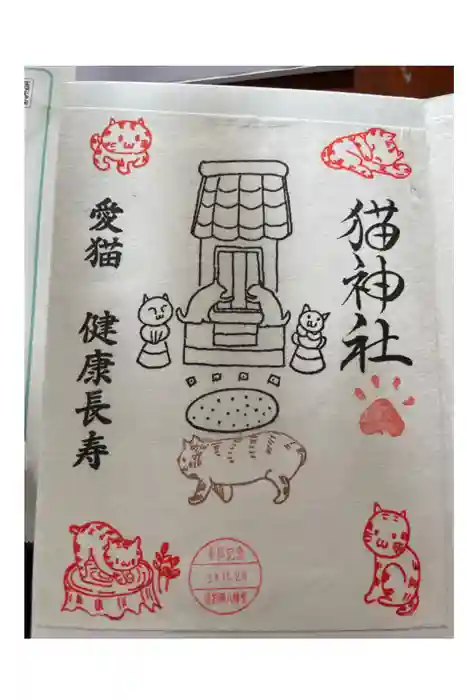 猫神社
愛猫 健康長寿